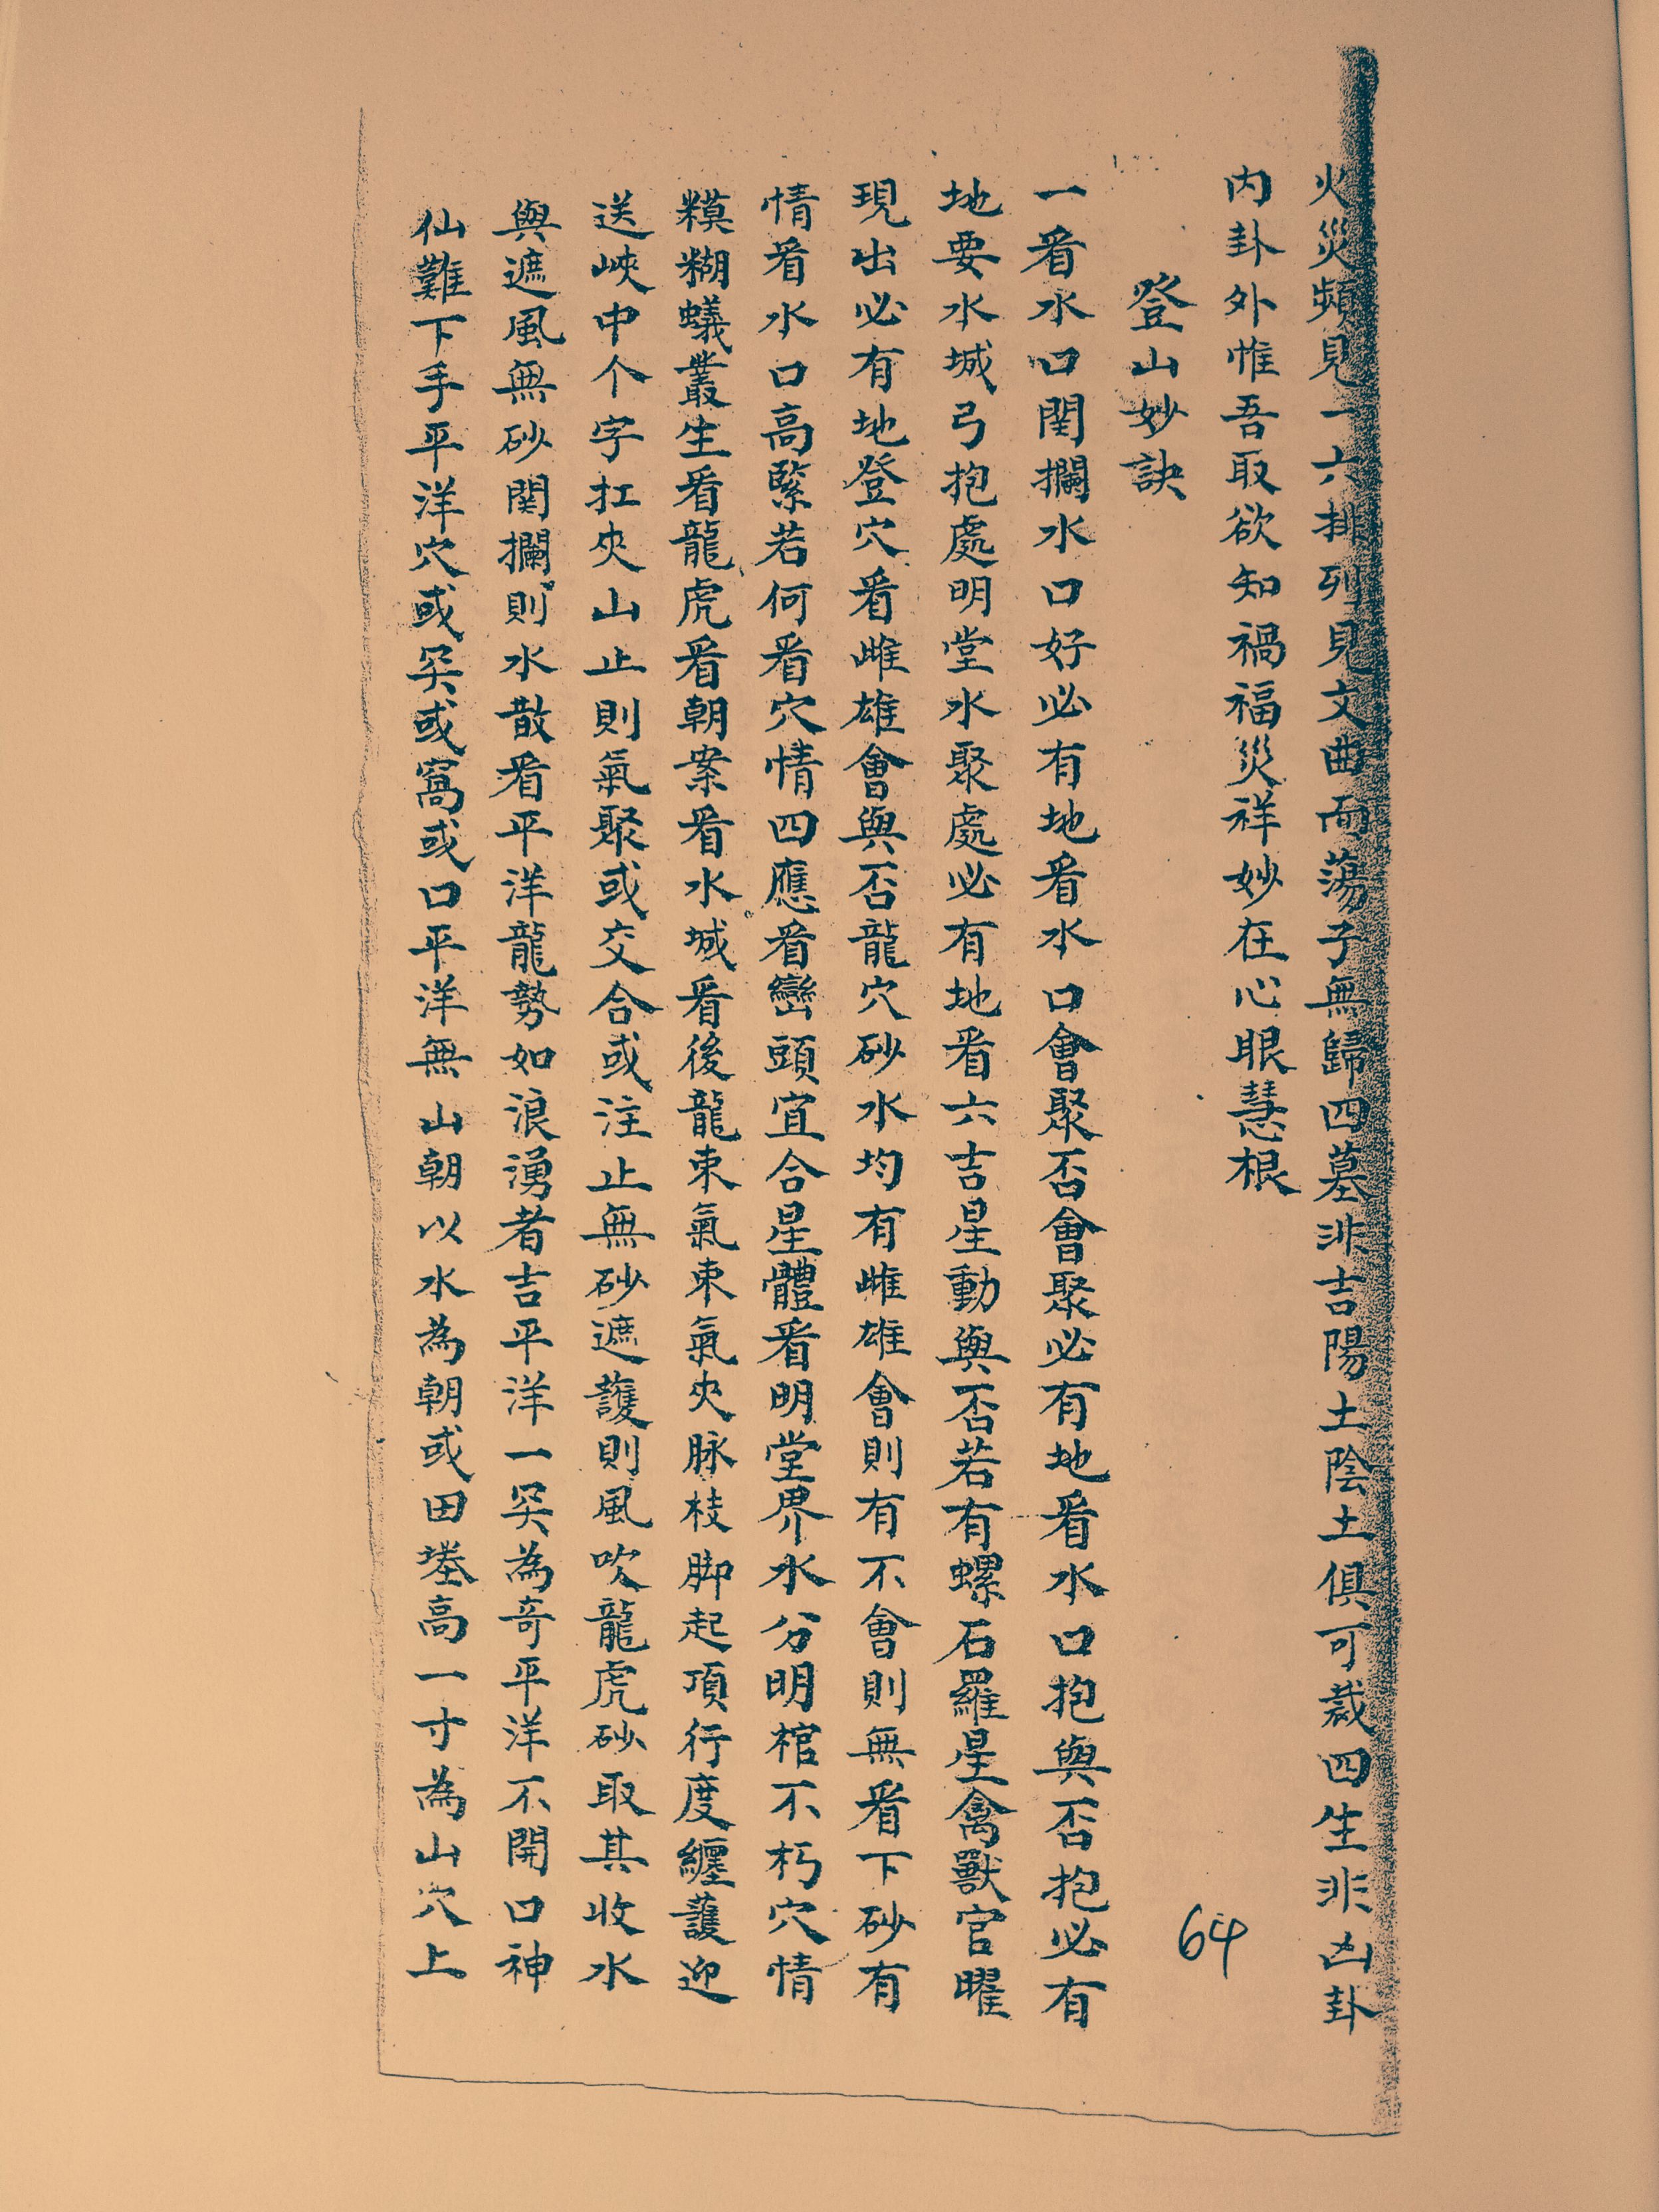 火災頻見一六排列見文曲而蕩子無歸四墓非吉陽土陰土俱可裁四生非凶卦
內卦外惟吾取欲知禍福災祥妙在心眼慧根
登山妙訣
一看水口関攔水口好必有地看水口會聚否會聚必有地看水口抱與否抱必有
地要水城弓抱處明堂水聚處必有地看六吉星動與否若有螺石羅星禽獸官曜
現出必有地登穴看雌雄會與否龍穴砂水均有雌雄會則有不會則無看下砂有
情看水口高緊若何看穴情四應看巒頭宜合星體看明堂界水分明棺不朽穴情
糢糊蟻叢生看龍虎看朝案看水城看後龍束氣束氣夾脉枝脚起項行度纏護迎
送峽中个字扛夾山止則氣聚或交合或注止無砂遮護則風吹龍虎砂取其收水
與遮風無砂関攔則水散看平洋龍勢如浪湧者吉平洋一突為奇平洋不開口神
仙難下手平洋穴或突或窩或口平洋無山朝以水為朝或田塍高一寸為山穴上
64